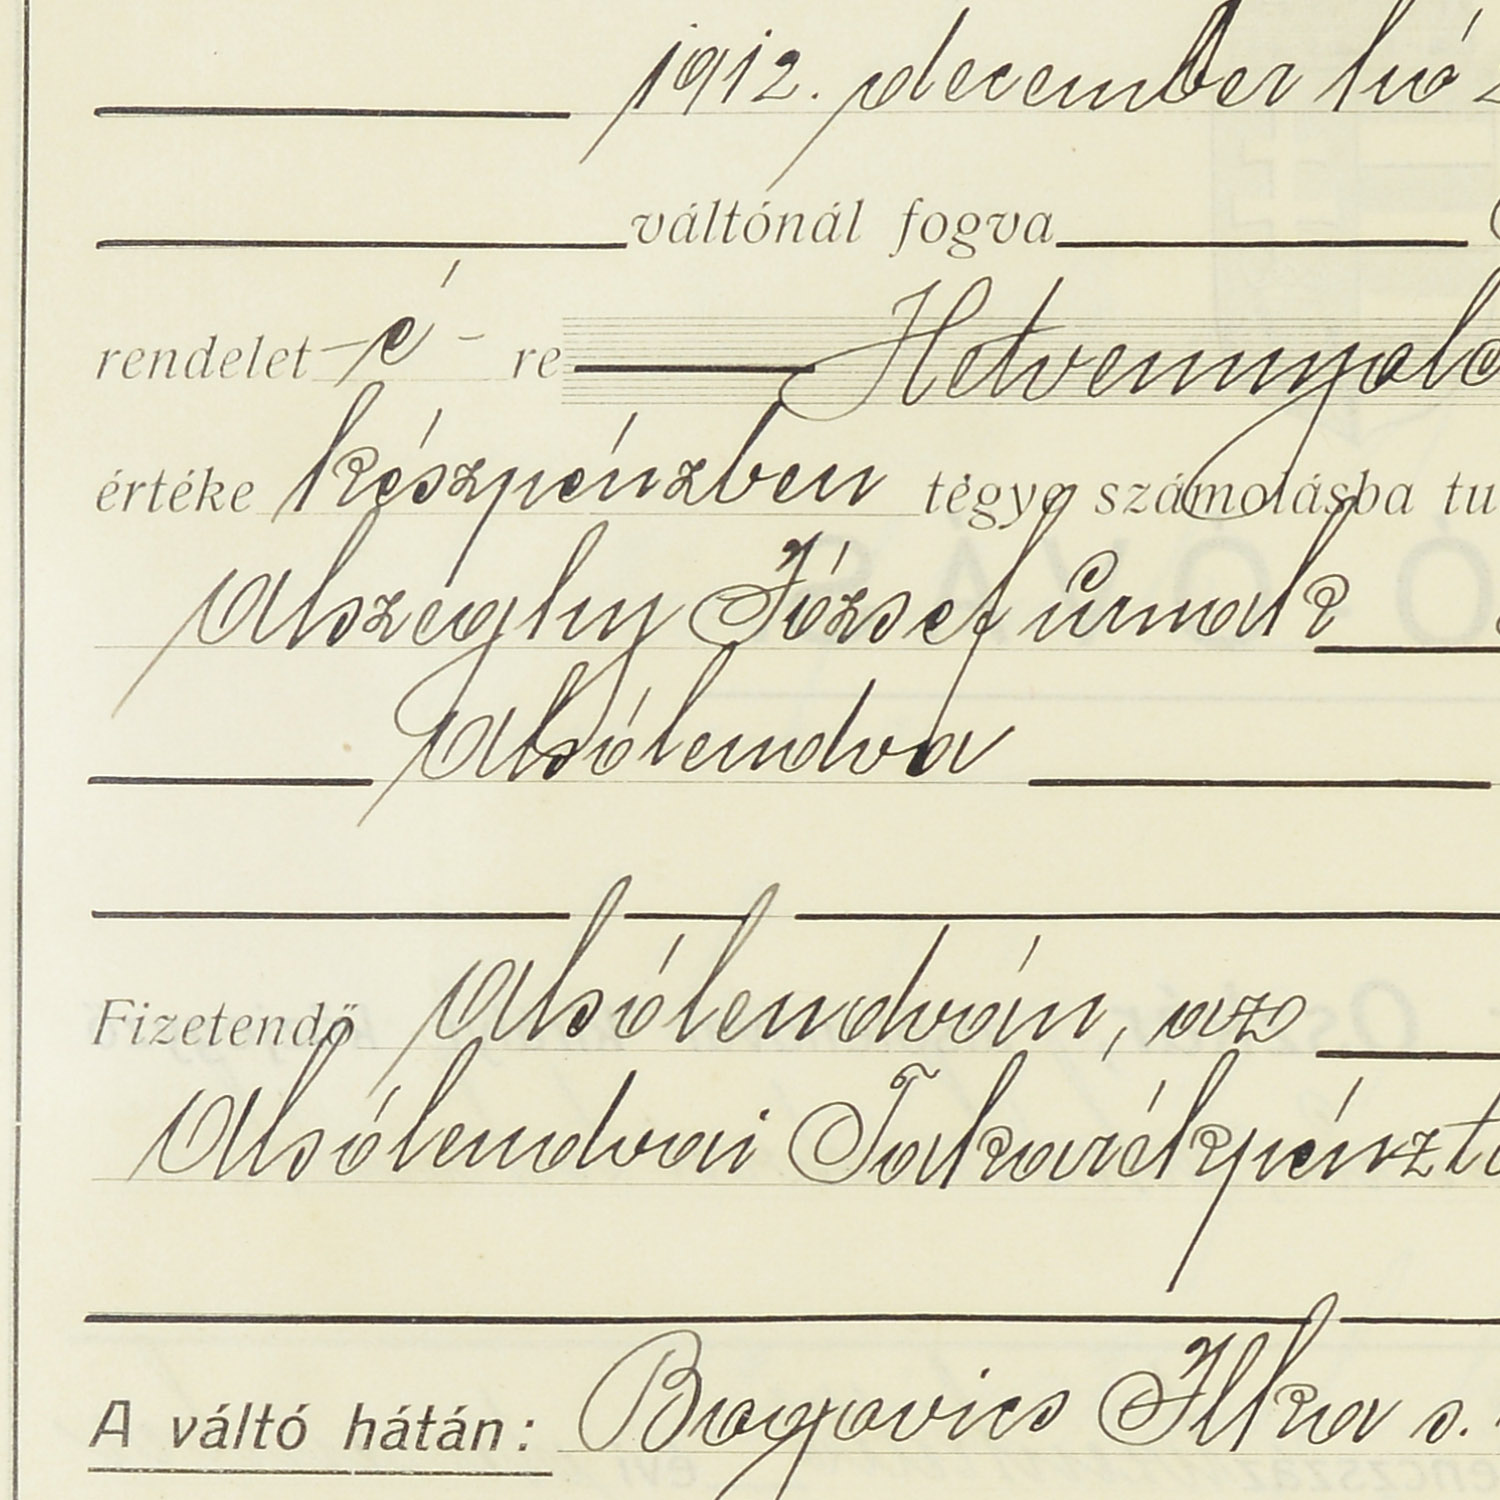 1912. december hó
váltónál fogva
rendelet é - re Hetvennyolc
értéke készpénzben tegye számolásba tu
Alszeghy József úrnak
Alsólendva
Fizetendő Alsólendván, az
Alsólendvai Takarékpénztá
A váltó hátán: Bagovics Ilka s.